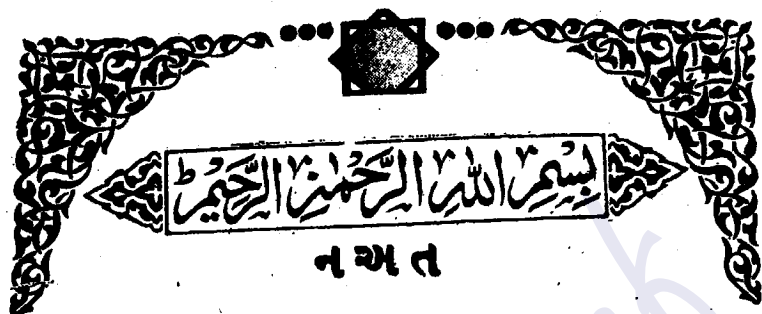 بِسْمِ اللهِ الرَّحْمٰنِ الرَّحِيْمِ ط
ન અ ત